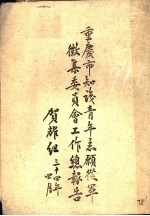 重慶市知識青年志願從軍
徵集委員會工作總報告
賀耀組
三十四年
四月